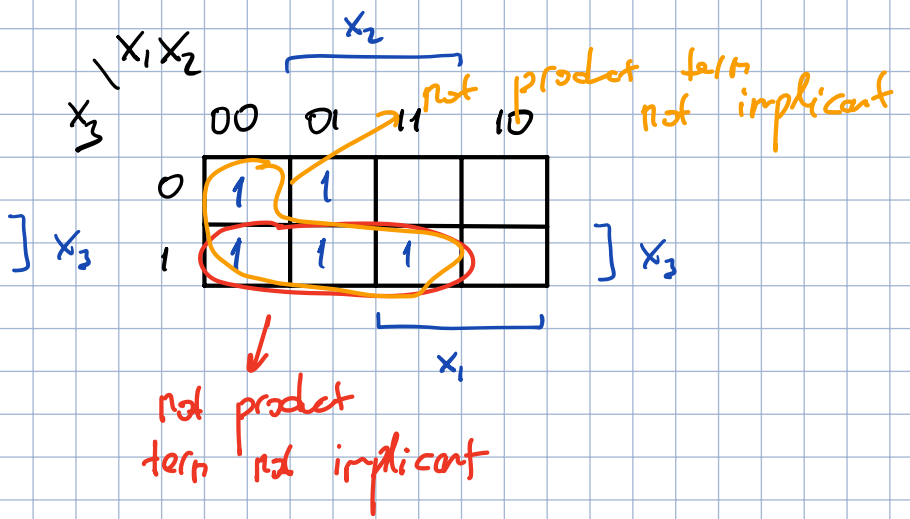 x₂
x₁x₂
x₃
not product term
not implicant
00 01 11 10
0 1 1
] x₃ 1 1 1 1 ] x₃
x₁
not product
term not implicant